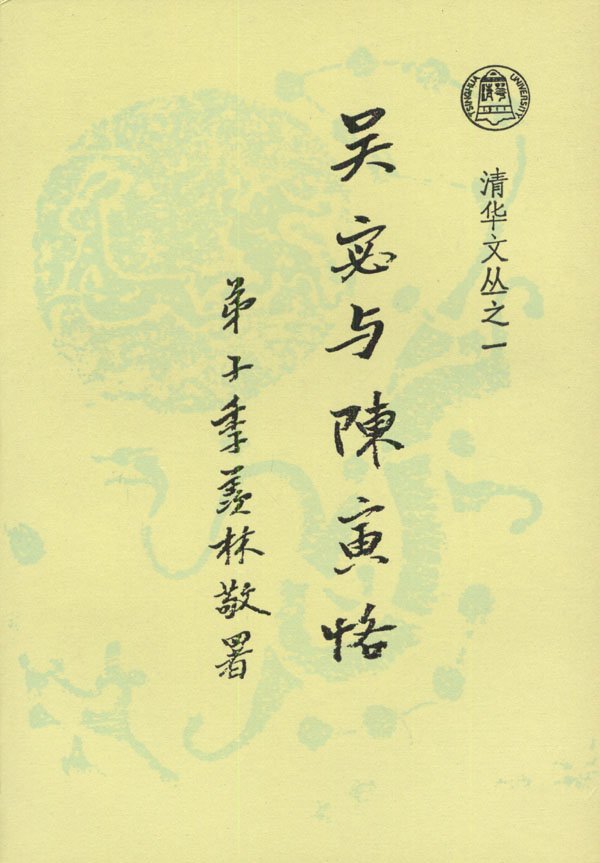 TSINGHUA UNIVERSITY
清华文丛之一
吴宓与陳寅恪
弟子季羡林敬署